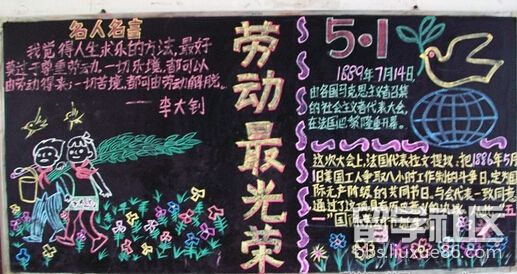 名人名言
我觉得人生求乐的方法,最好
莫过于尊重劳动。一切乐境,都可以
由劳动得来;一切苦境,都可由劳动解脱。
——李大钊
劳动最光荣
5·1
1889年7月14日,
由各国马克思主义者召集
的社会主义者代表大会,
在法国巴黎隆重开幕。
这次大会上,法国代表拉文提议:把1886年5月
1日美国工人争取八小时工作制的斗争日,定为国
际无产阶级的共同节日。与会代表一致同意
通过了这
留学社区
bbs.liuxue86.com